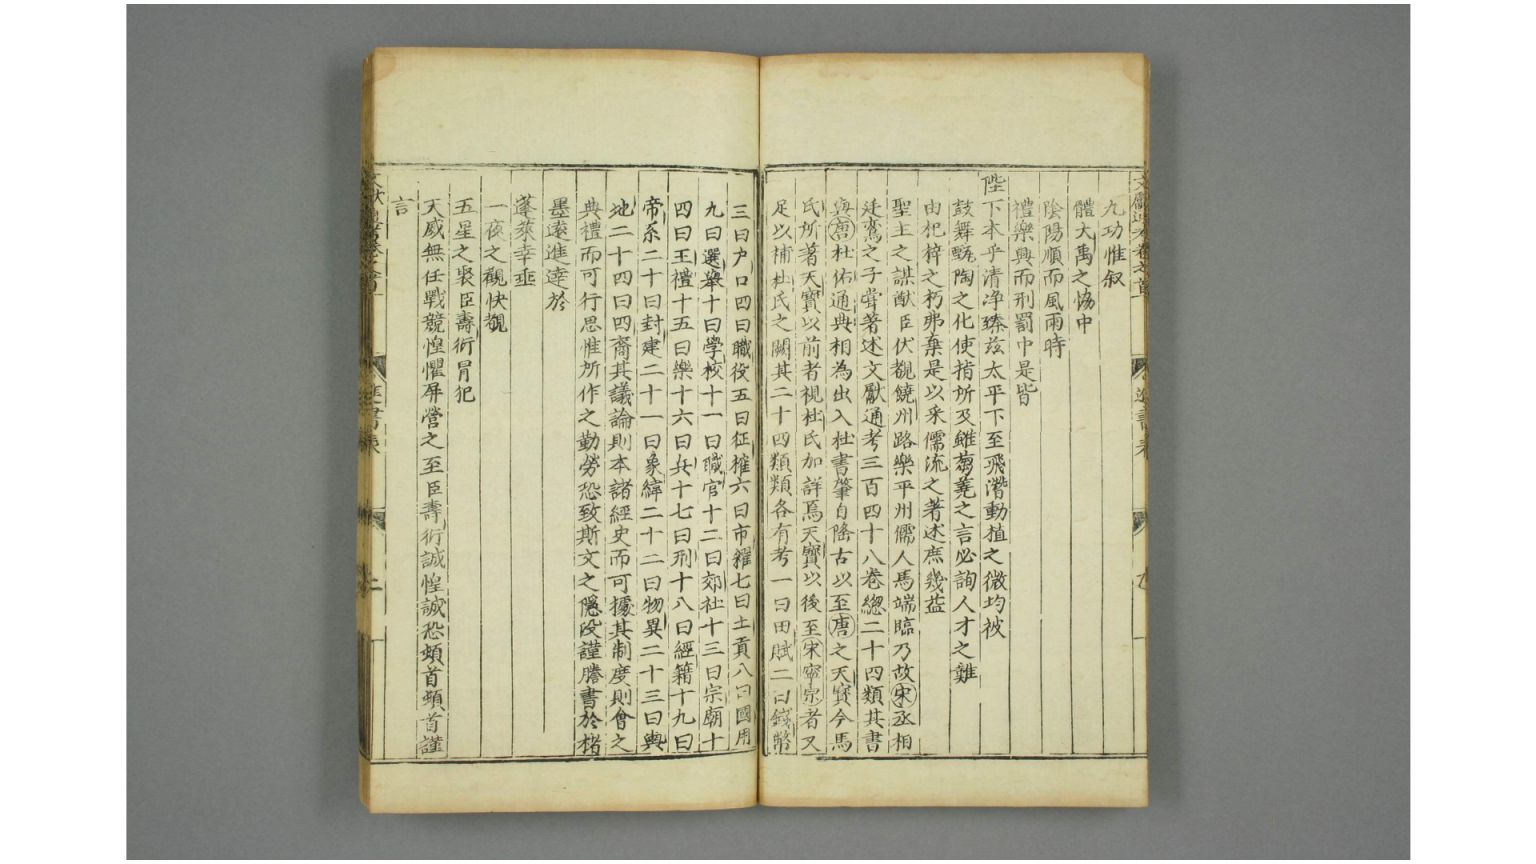 九功惟叙
體大禹之恊中
陰陽順而風雨時
禮樂興而刑罰中是皆
陛下本乎清净臻兹太平下至飛潛動植之微均被
鼓舞甄陶之化使指所及雖蒭蕘之言必詢人才之難
由杞梓之朽弗棄是以采儒流之著述庶幾益
聖主之謀猷臣伏覩饒州路樂平州儒人馬端臨乃故宋丞相
廷鸞之子甞著述文獻通考三百四十八卷緫二十四類其書
與唐杜佑通典相為出入杜書肇自隆古以至唐之天寳今馬
氏所著天寳以前者視杜氏加詳焉天寳以後至宋寧宗者又
足以補杜氏之闕其二十四類類各有考一曰田賦二曰錢幣
三曰户口四曰職役五曰征榷六曰市糴七曰土貢八曰國用
九曰選舉十曰學校十一曰職官十二曰郊社十三曰宗廟十
四曰王禮十五曰樂十六曰兵十七曰刑十八曰經籍十九曰
帝系二十曰封建二十一曰象緯二十二曰物異二十三曰輿
地二十四曰四裔其議論則本諸經史而可據其制度則會之
典禮而可行思惟所作之勤勞恐致斯文之隱没謹謄書於楮
墨逺進達於
蓬萊幸垂
一夜之觀快覩
五星之聚臣壽衍冐犯
天威無任戰競惶懼屏營之至臣壽衍誠惶誠恐頓首頓首謹
言